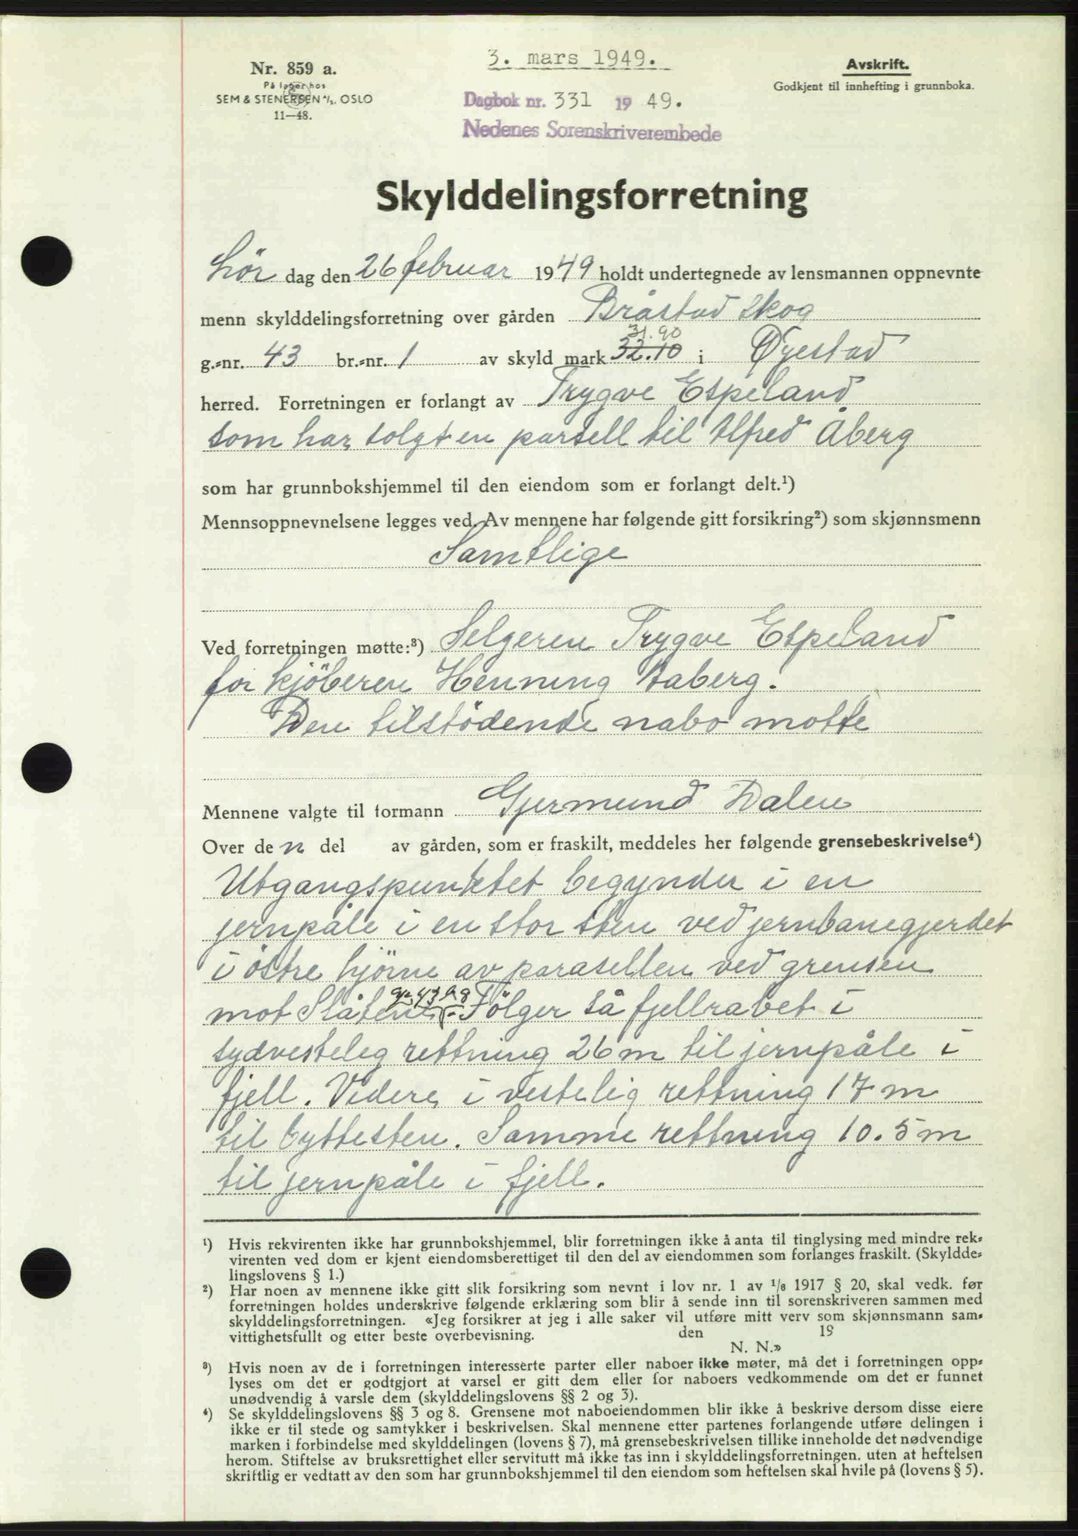 Nr. 859 a.
På lager hos
SEM & STENERSEN A/S. OSLO
11—48.
3. mars 1949.
Dagbok nr. 331 19 49.
Nedenes Sorenskriverembede
Avskrift.
Godkjent til innhefting i grunnboka.
Skylddelingsforretning
Lör dag den 26 februar 1949 holdt undertegnede av lensmannen oppnevnte
menn skylddelingsforretning over gården Bråstad skog
31.90
g.-nr. 43 br.-nr. 1 av skyld mark 32.10 i Øyestad
herred. Forretningen er forlangt av Trygve Espeland
som har solgt en parsell til Alfred Åberg
som har grunnbokshjemmel til den eiendom som er forlangt delt.¹)
Mennsoppnevnelsene legges ved. Av mennene har følgende gitt forsikring²) som skjønnsmenn
Samtlige
Ved forretningen møtte:³) Selgeren Trygve Espeland
for kjöberen Henning Aaberg.
Den tilstödende nabo motte
Mennene valgte til formann Gjermund Dalen
Over de n del av gården, som er fraskilt, meddeles her følgende grensebeskrivelse⁴)
Utgangspunktet begynder i en
jernpåle i en stor sten ved jernbanegjerdet
i östre hjörne av parasellen ved grensen
mot Slåtene Fölger så fjellrabet i
sydvesteleg rettning 26 m til jernpåle i
fjell. Videre i vestelig rettning 17 m
til byttesten. Samme rettning 10.5 m
til jernpåle i fjell.
¹) Hvis rekvirenten ikke har grunnbokshjemmel, blir forretningen ikke å anta til tinglysing med mindre rek-
virenten ved dom er kjent eiendomsberettiget til den del av eiendommen som forlanges fraskilt. (Skyldde-
lingslovens § 1.)
²) Har noen av mennene ikke gitt slik forsikring som nevnt i lov nr. 1 av 1/6 1917 § 20, skal vedk. før
forretningen holdes underskrive følgende erklæring som blir å sende inn til sorenskriveren sammen med
skylddelingsforretningen. «Jeg forsikrer at jeg i alle saker vil utføre mitt verv som skjønnsmann sam-
vittighetsfullt og etter beste overbevisning. den 19
N. N.»
³) Hvis noen av de i forretningen interesserte parter eller naboer ikke møter, må det i forretningen opp-
lyses om det er godtgjort at varsel er gitt dem eller for naboers vedkommende om det er funnet
unødvendig å varsle dem (skylddelingslovens §§ 2 og 3).
⁴) Se skylddelingslovens §§ 3 og 8. Grensene mot naboeiendommen blir ikke å beskrive dersom disse eiere
ikke er til stede og samtykker i beskrivelsen. Skal mennene etter partenes forlangende utføre delingen i
marken i forbindelse med skylddelingen (lovens § 7), må grensebeskrivelsen tillike inneholde det nødvendige
herom. Stiftelse av bruksrettighet eller servitutt må ikke tas inn i skylddelingsforretningen, uten at heftelsen
skriftlig er vedtatt av den som har grunnbokshjemmel til den eiendom som heftelsen skal hvile på (lovens § 5).